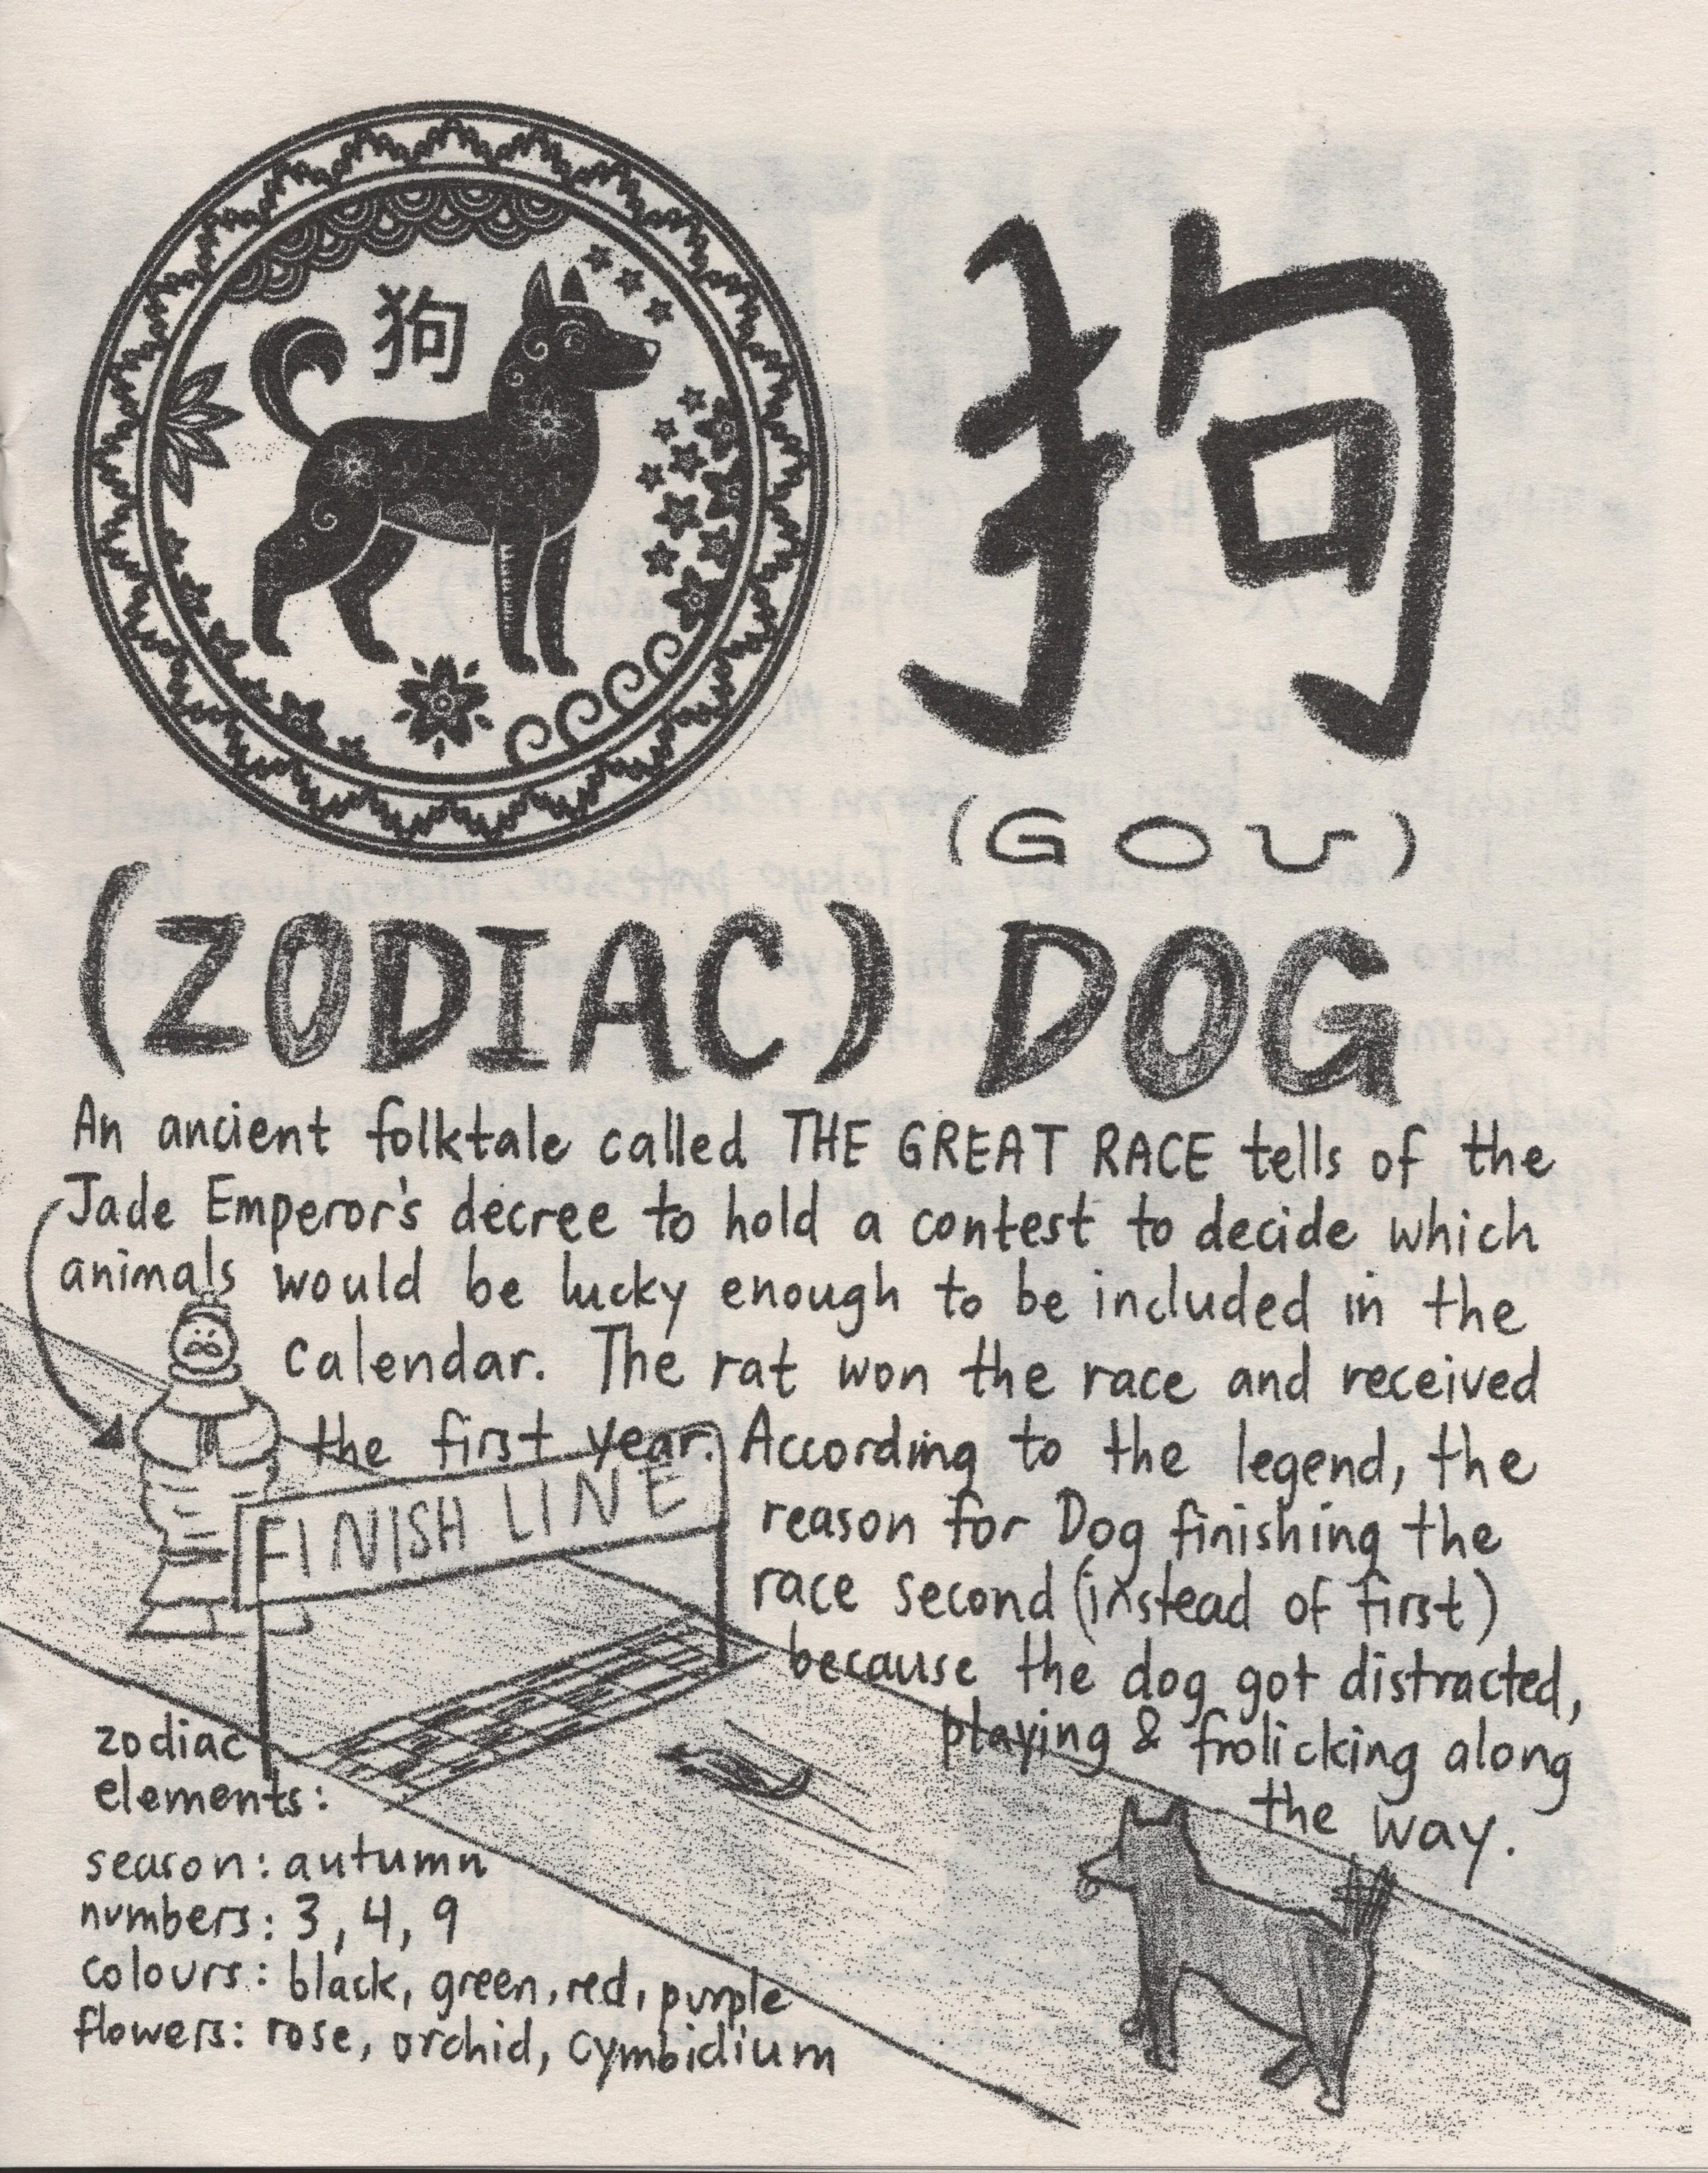 狗
狗
(GOU)
(ZODIAC) DOG
An ancient folktale called THE GREAT RACE tells of the
Jade Emperor's decree to hold a contest to decide which
animals would be lucky enough to be included in the
Calendar. The rat won the race and received
the first year. According to the legend, the
reason for Dog finishing the
race second (instead of first)
because the dog got distracted,
playing & frolicking along
the way.
FINISH LINE
zodiac
elements:
season: autumn
numbers: 3, 4, 9
colours: black, green, red, purple
flowers: rose, orchid, cymbidium